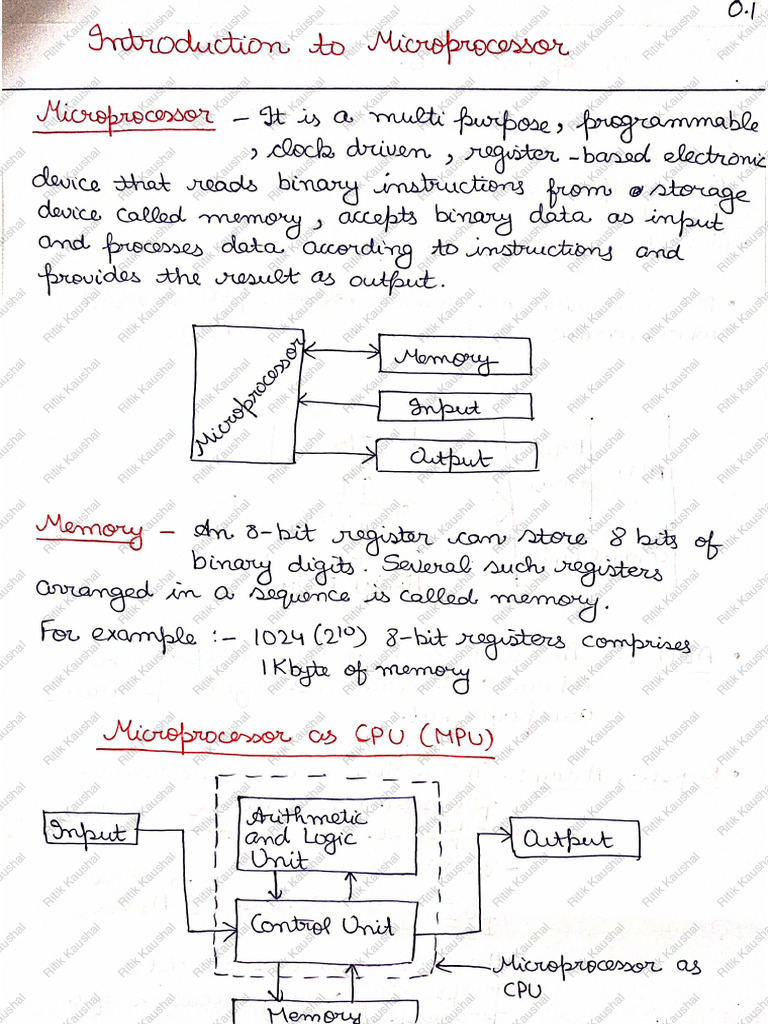 0.1
Introduction to Microprocessor
Microprocessor - It is a multi purpose, programmable
, clock driven, register-based electronic
device that reads binary instructions from storage
device called memory, accepts binary data as input
and processes data according to instructions and
provides the result as output.
Microprocessor
Memory
Input
Output
Memory - An 8-bit register can store 8 bits of
binary digits. Several such registers
arranged in a sequence is called memory.
For example :- 1024 (2¹⁰) 8-bit registers comprises
1 Kbyte of memory
Microprocessor as CPU (MPU)
Input
Arithmetic
and Logic
Unit
Output
Control Unit
Microprocessor as
CPU
Memory
Ritik Kaushal